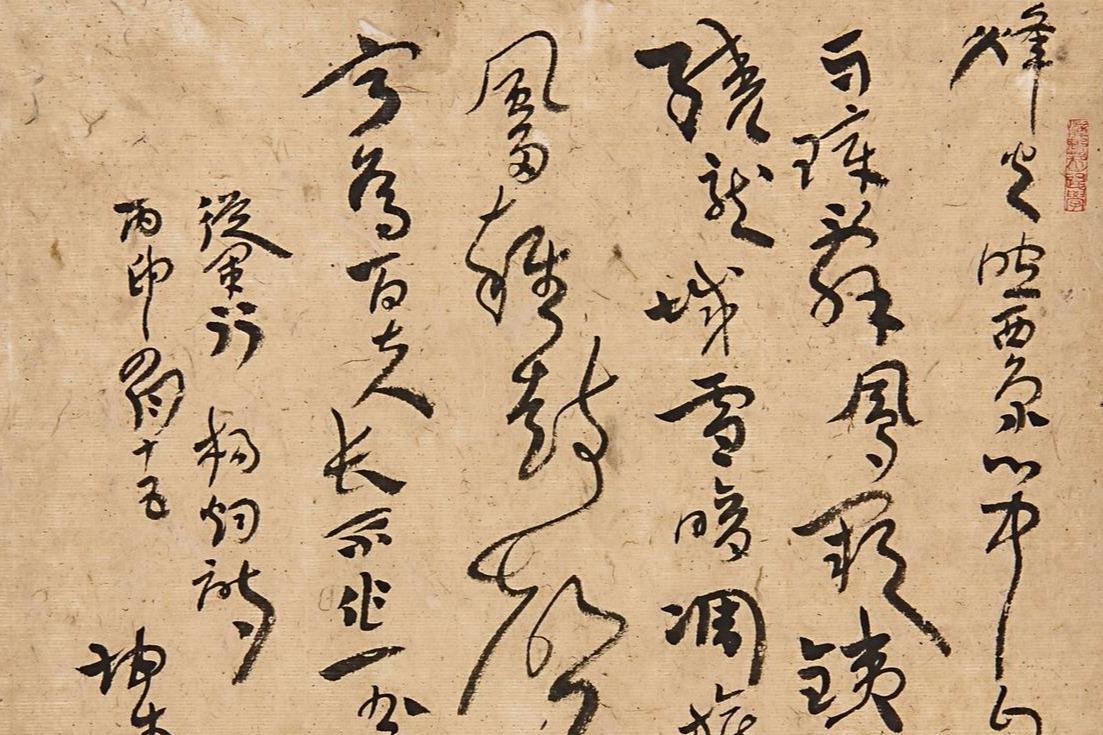 烽火照西京心中自
牙璋辭鳳闕銕
繞龍城雪暗凋旗
風多雜鼓聲
寧為百夫長作一書
從軍行 楊炯詩
丙申十五 坤